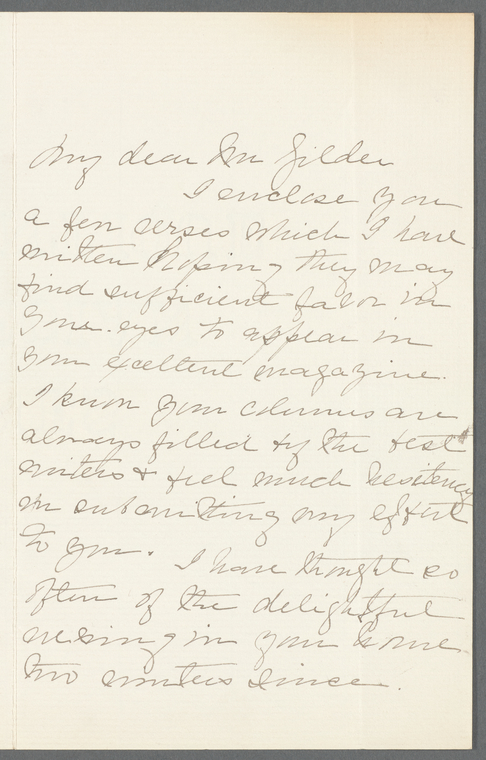 My dear Mr Gilder
I enclose you
a few verses which I have
written hoping they may
find sufficient favor in
your eyes to appear in
your excellent magazine.
I know your columns are
always filled by the best
writers & feel much hesitency
in submitting my effort
to you. I have thought so
often of the delightful
evening in your home
two winters since.